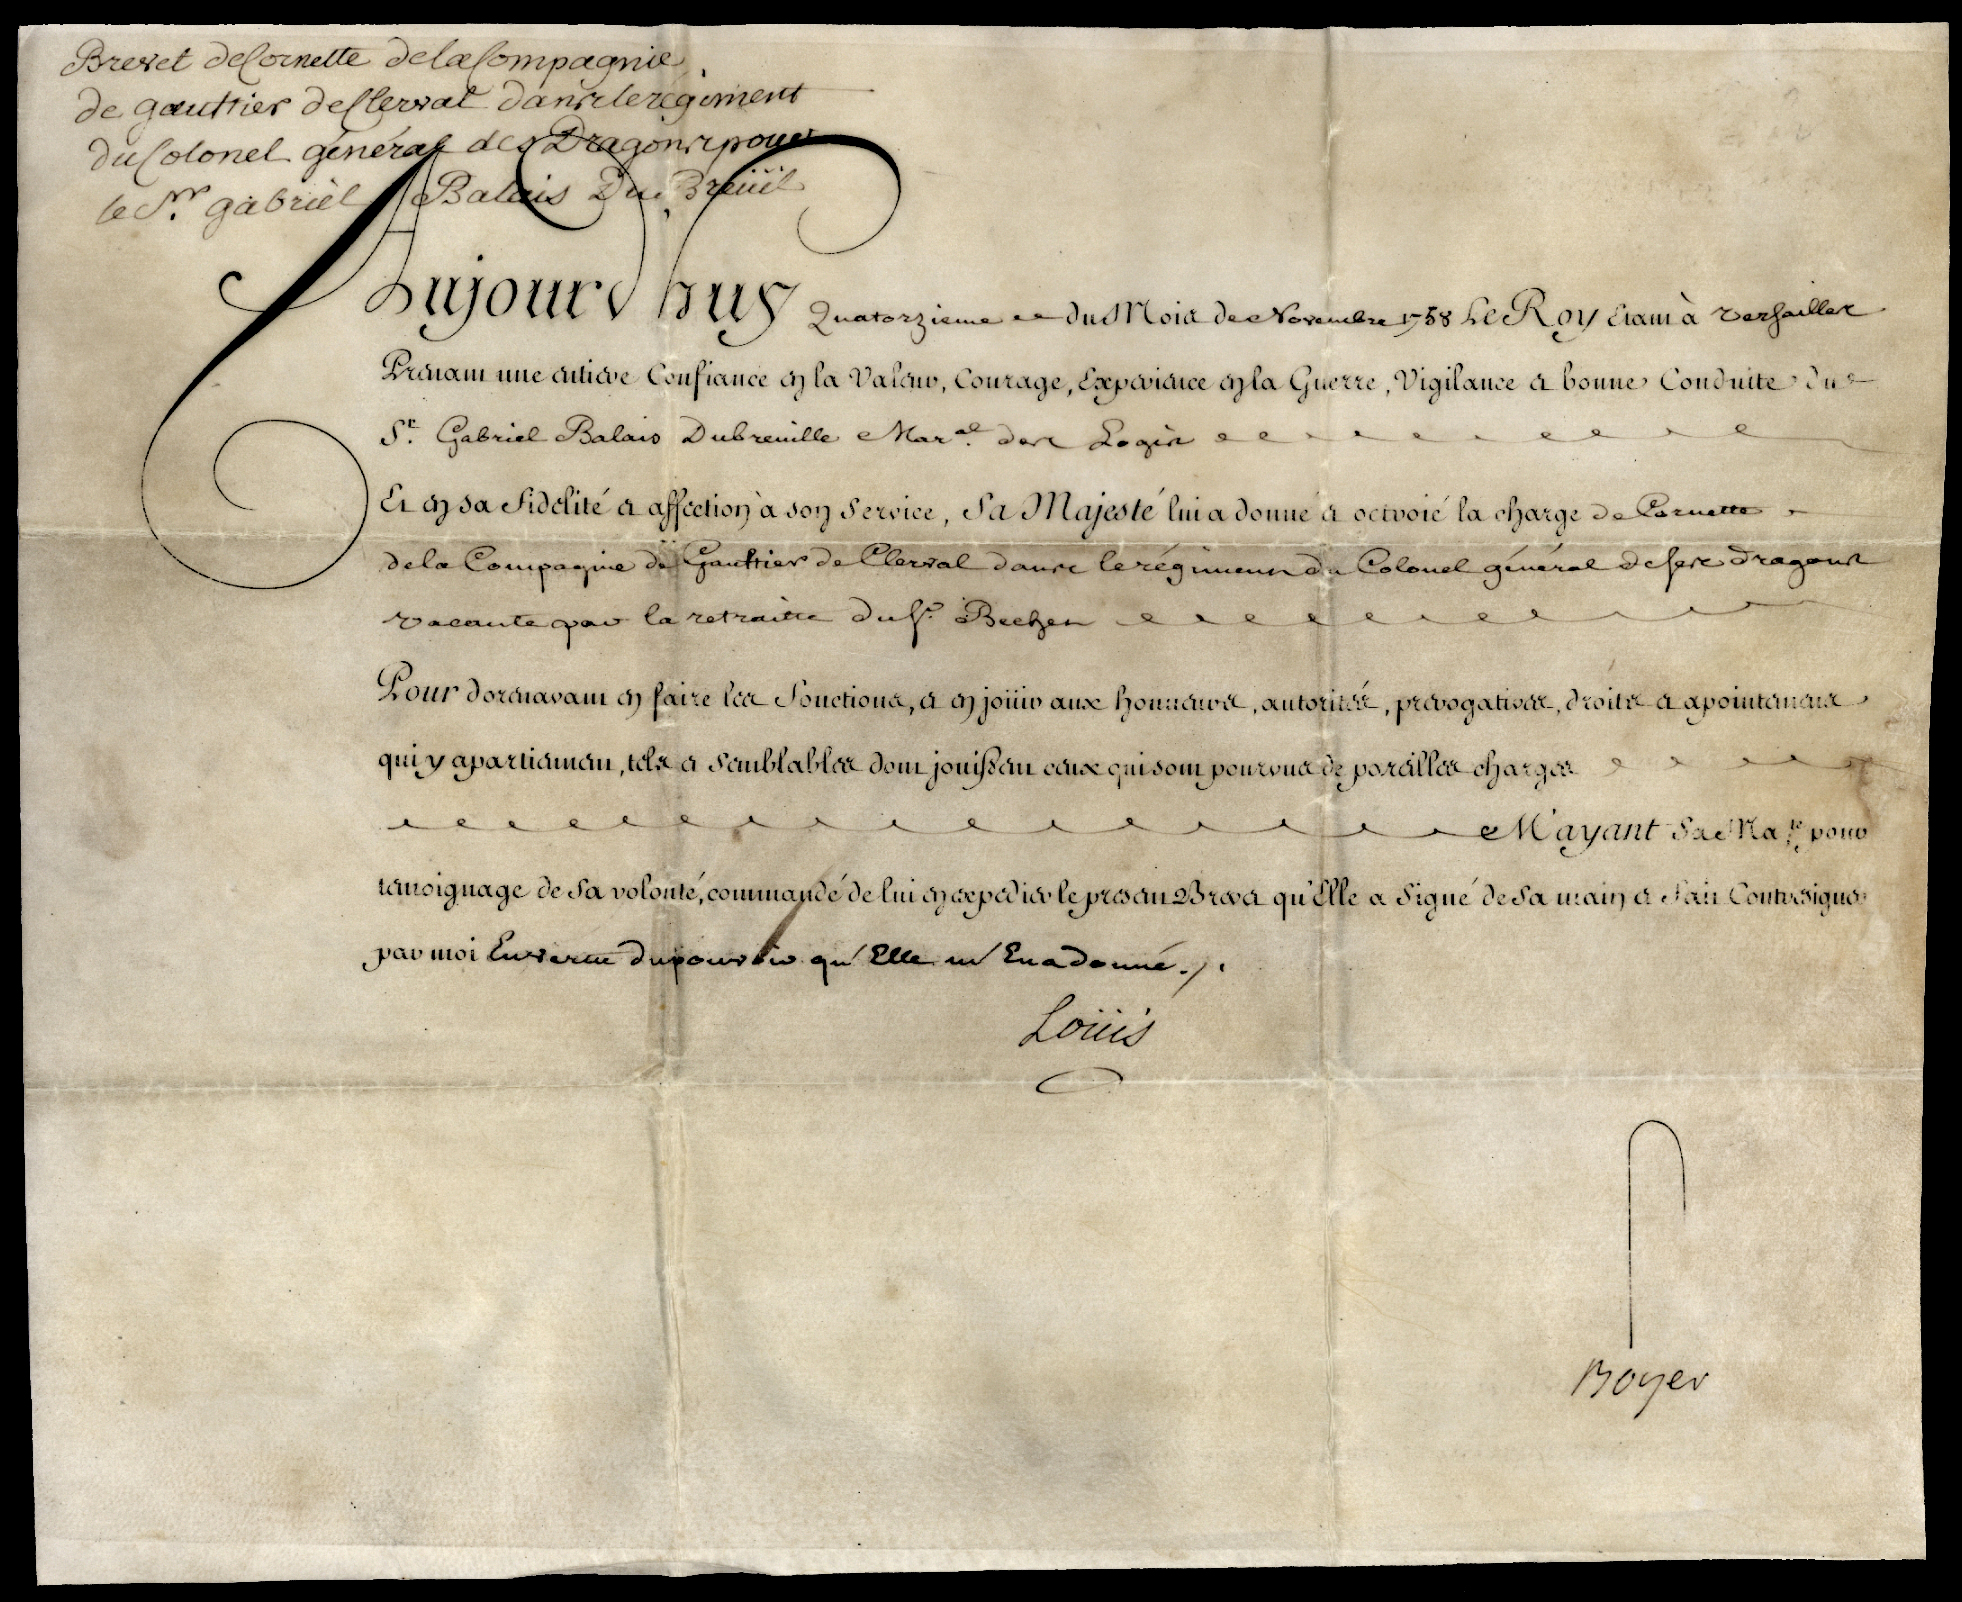 Brevet de Cornette de la Compagnie
de gauttier de Clerval dans le régiment
du Colonel général des Dragons pour
le Sr. gabriël Balais Du Breüil
Aujourd'huy Quatorzieme du Mois de Novembre 1758 Le Roy étant à Versailles
Prenant une entiere Confiance en la Valeur, Courage, Experience en la Guerre, Vigilance et bonne Conduite du
Sr. Gabriel Balais Dubreuille Maral. des Logis
Et en sa fidélité et affection à son Service, Sa Majesté lui a donné et octroié la charge de Cornette
de la Compagnie de Gauttier de Clerval dans le régiment du Colonel général de ses dragons
vacante par la retraitte du Sr.
Pour dorenavant en faire les Fonctions, et en joüir aux honneurs, autoritéz, prérogatives, droits et apointemens
qui y apartiennent, tels et Semblables dont jouissent ceux qui sont pourvus de pareilles charges
M'ayant Sa Ma.té pour
temoignage de Sa volonté, commandé de lui en expedier le present Brevet qu'Elle a Signé de Sa main et fait Contresigner
par moi En vertu du pouvoir qu'Elle m'En a donné./.
Loüis
Boyer